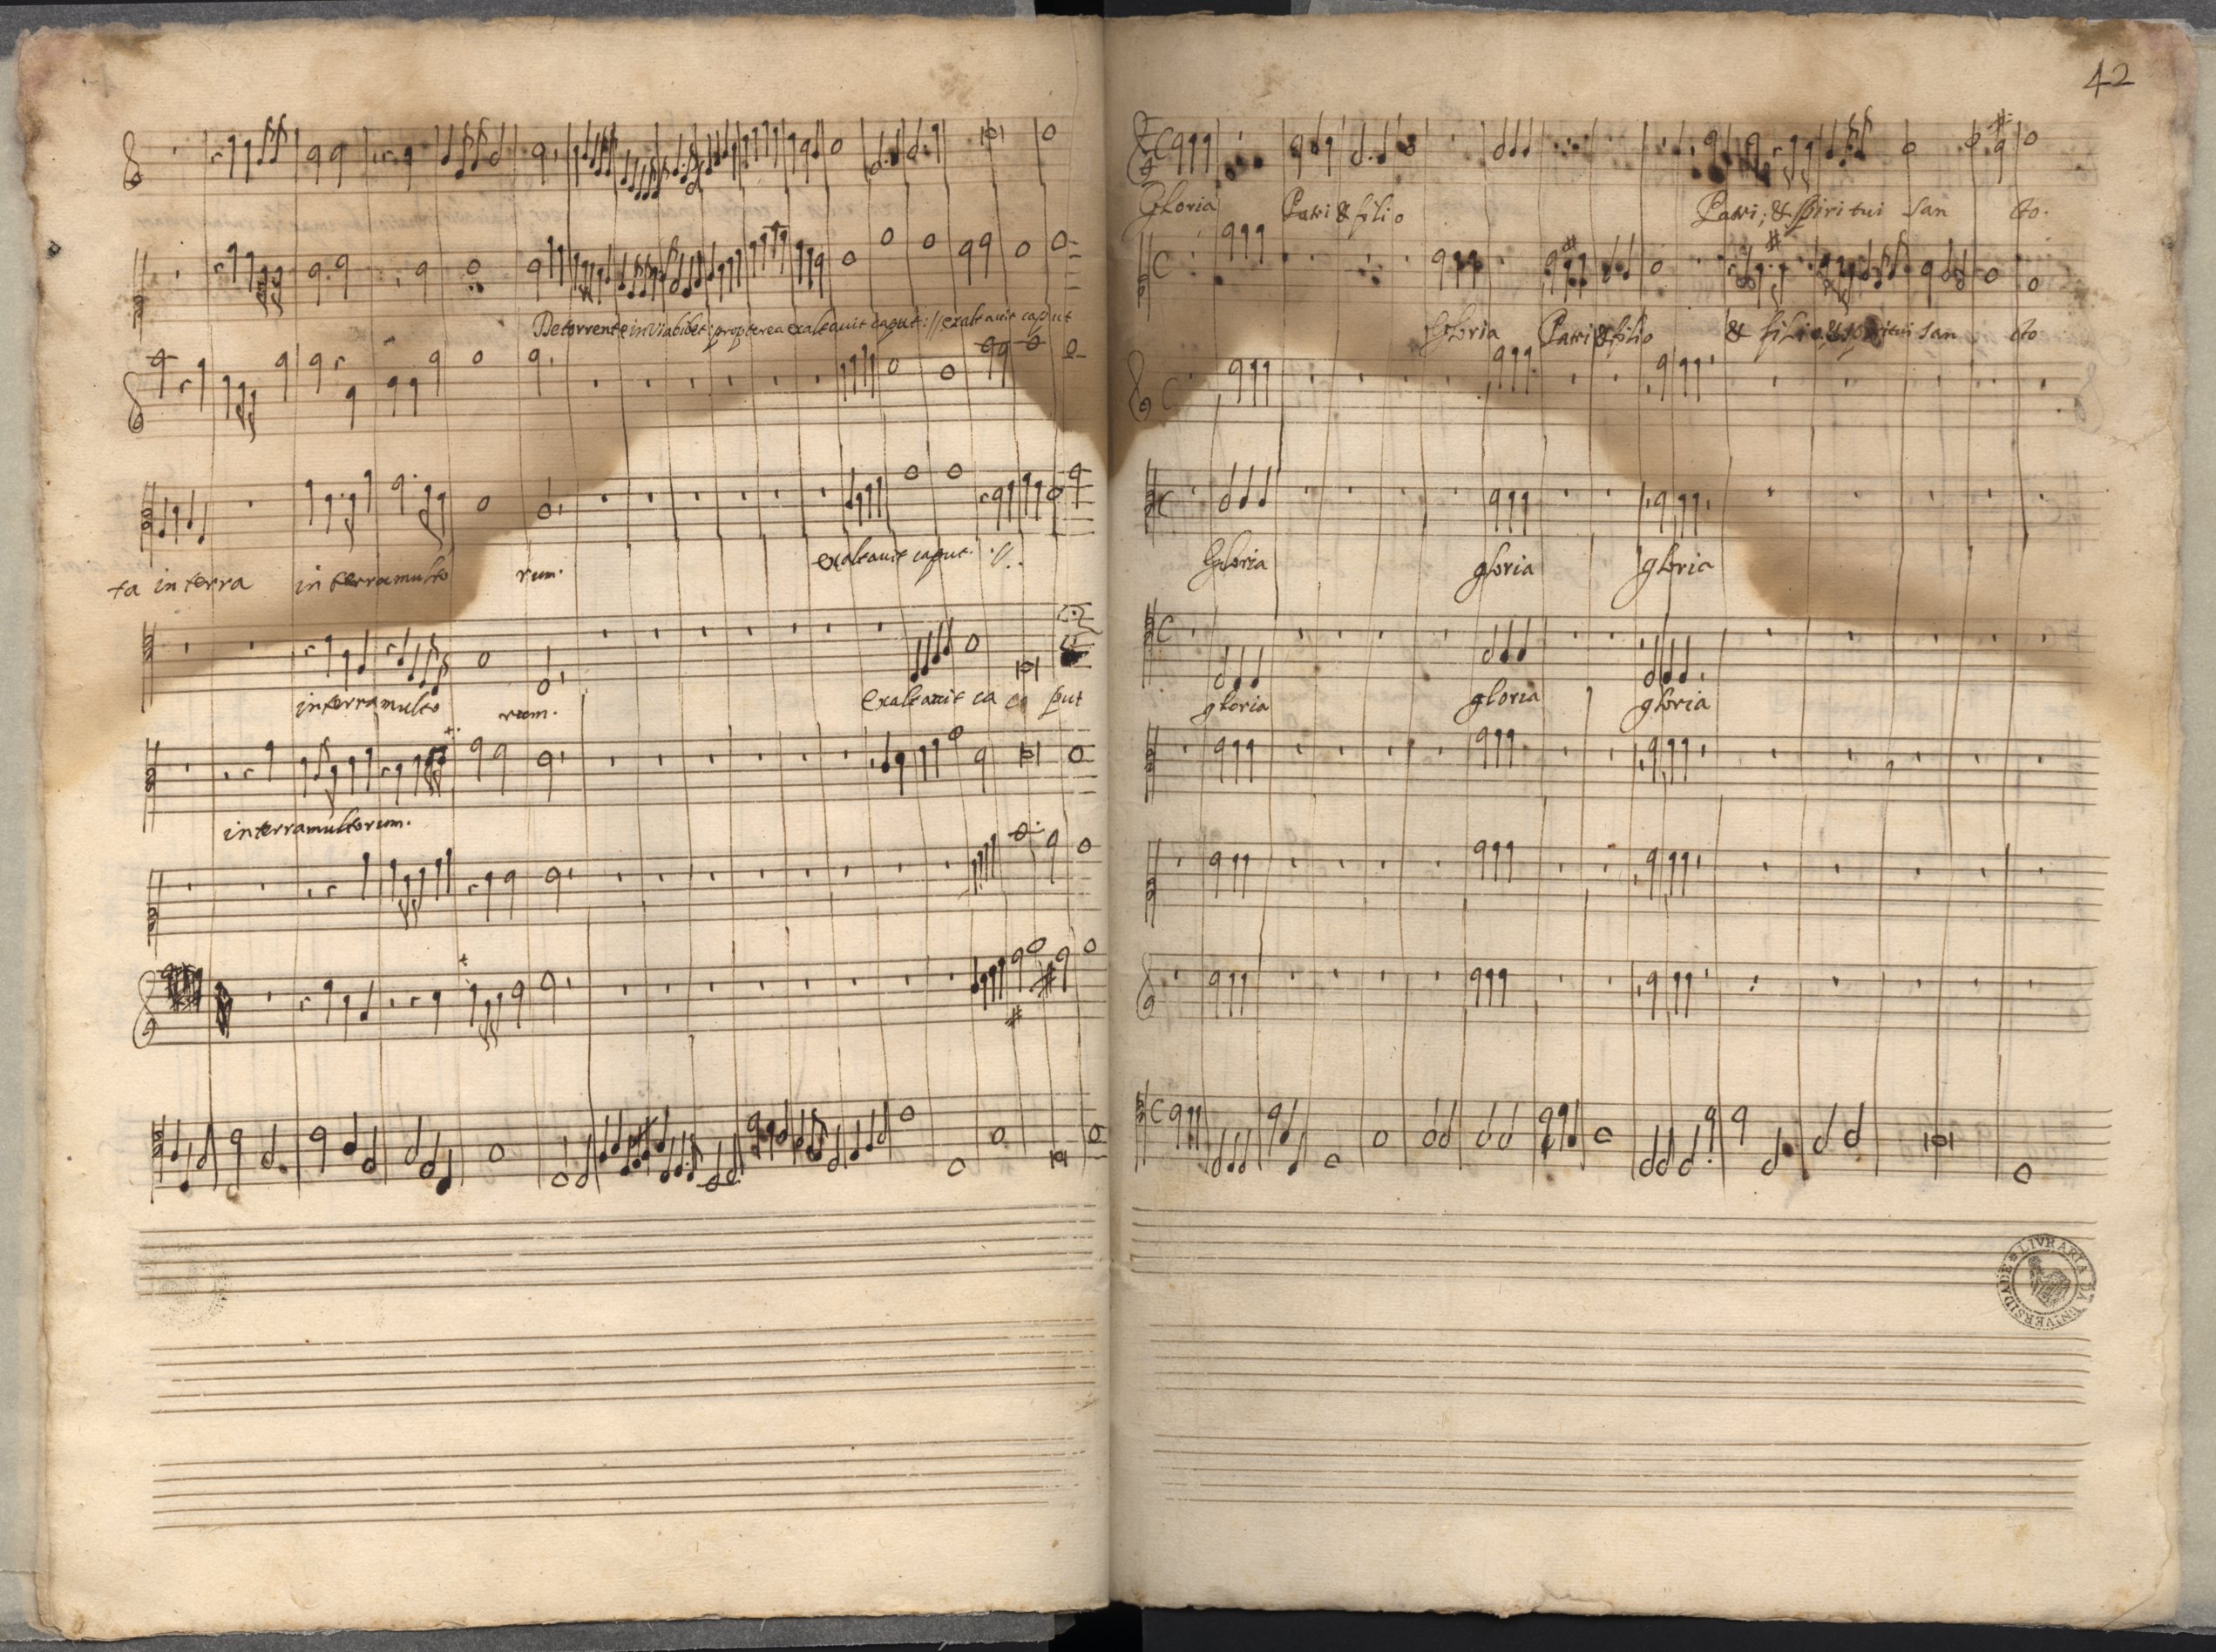 De torrente in via bibet: propterea exaltauit caput: // exaltauit caput
exaltauit caput. ://.
ta in terra in terra multo rum.
in terra multo rum. exaltauit ca put
in terra multorum.
42
Gloria Patri & filio Patri; & spiritui san cto.
Gloria Patri & filio & filio, & spiritui san cto
Gloria gloria gloria
gloria gloria gloria
LIVRARIA DA UNIVERSIDADE